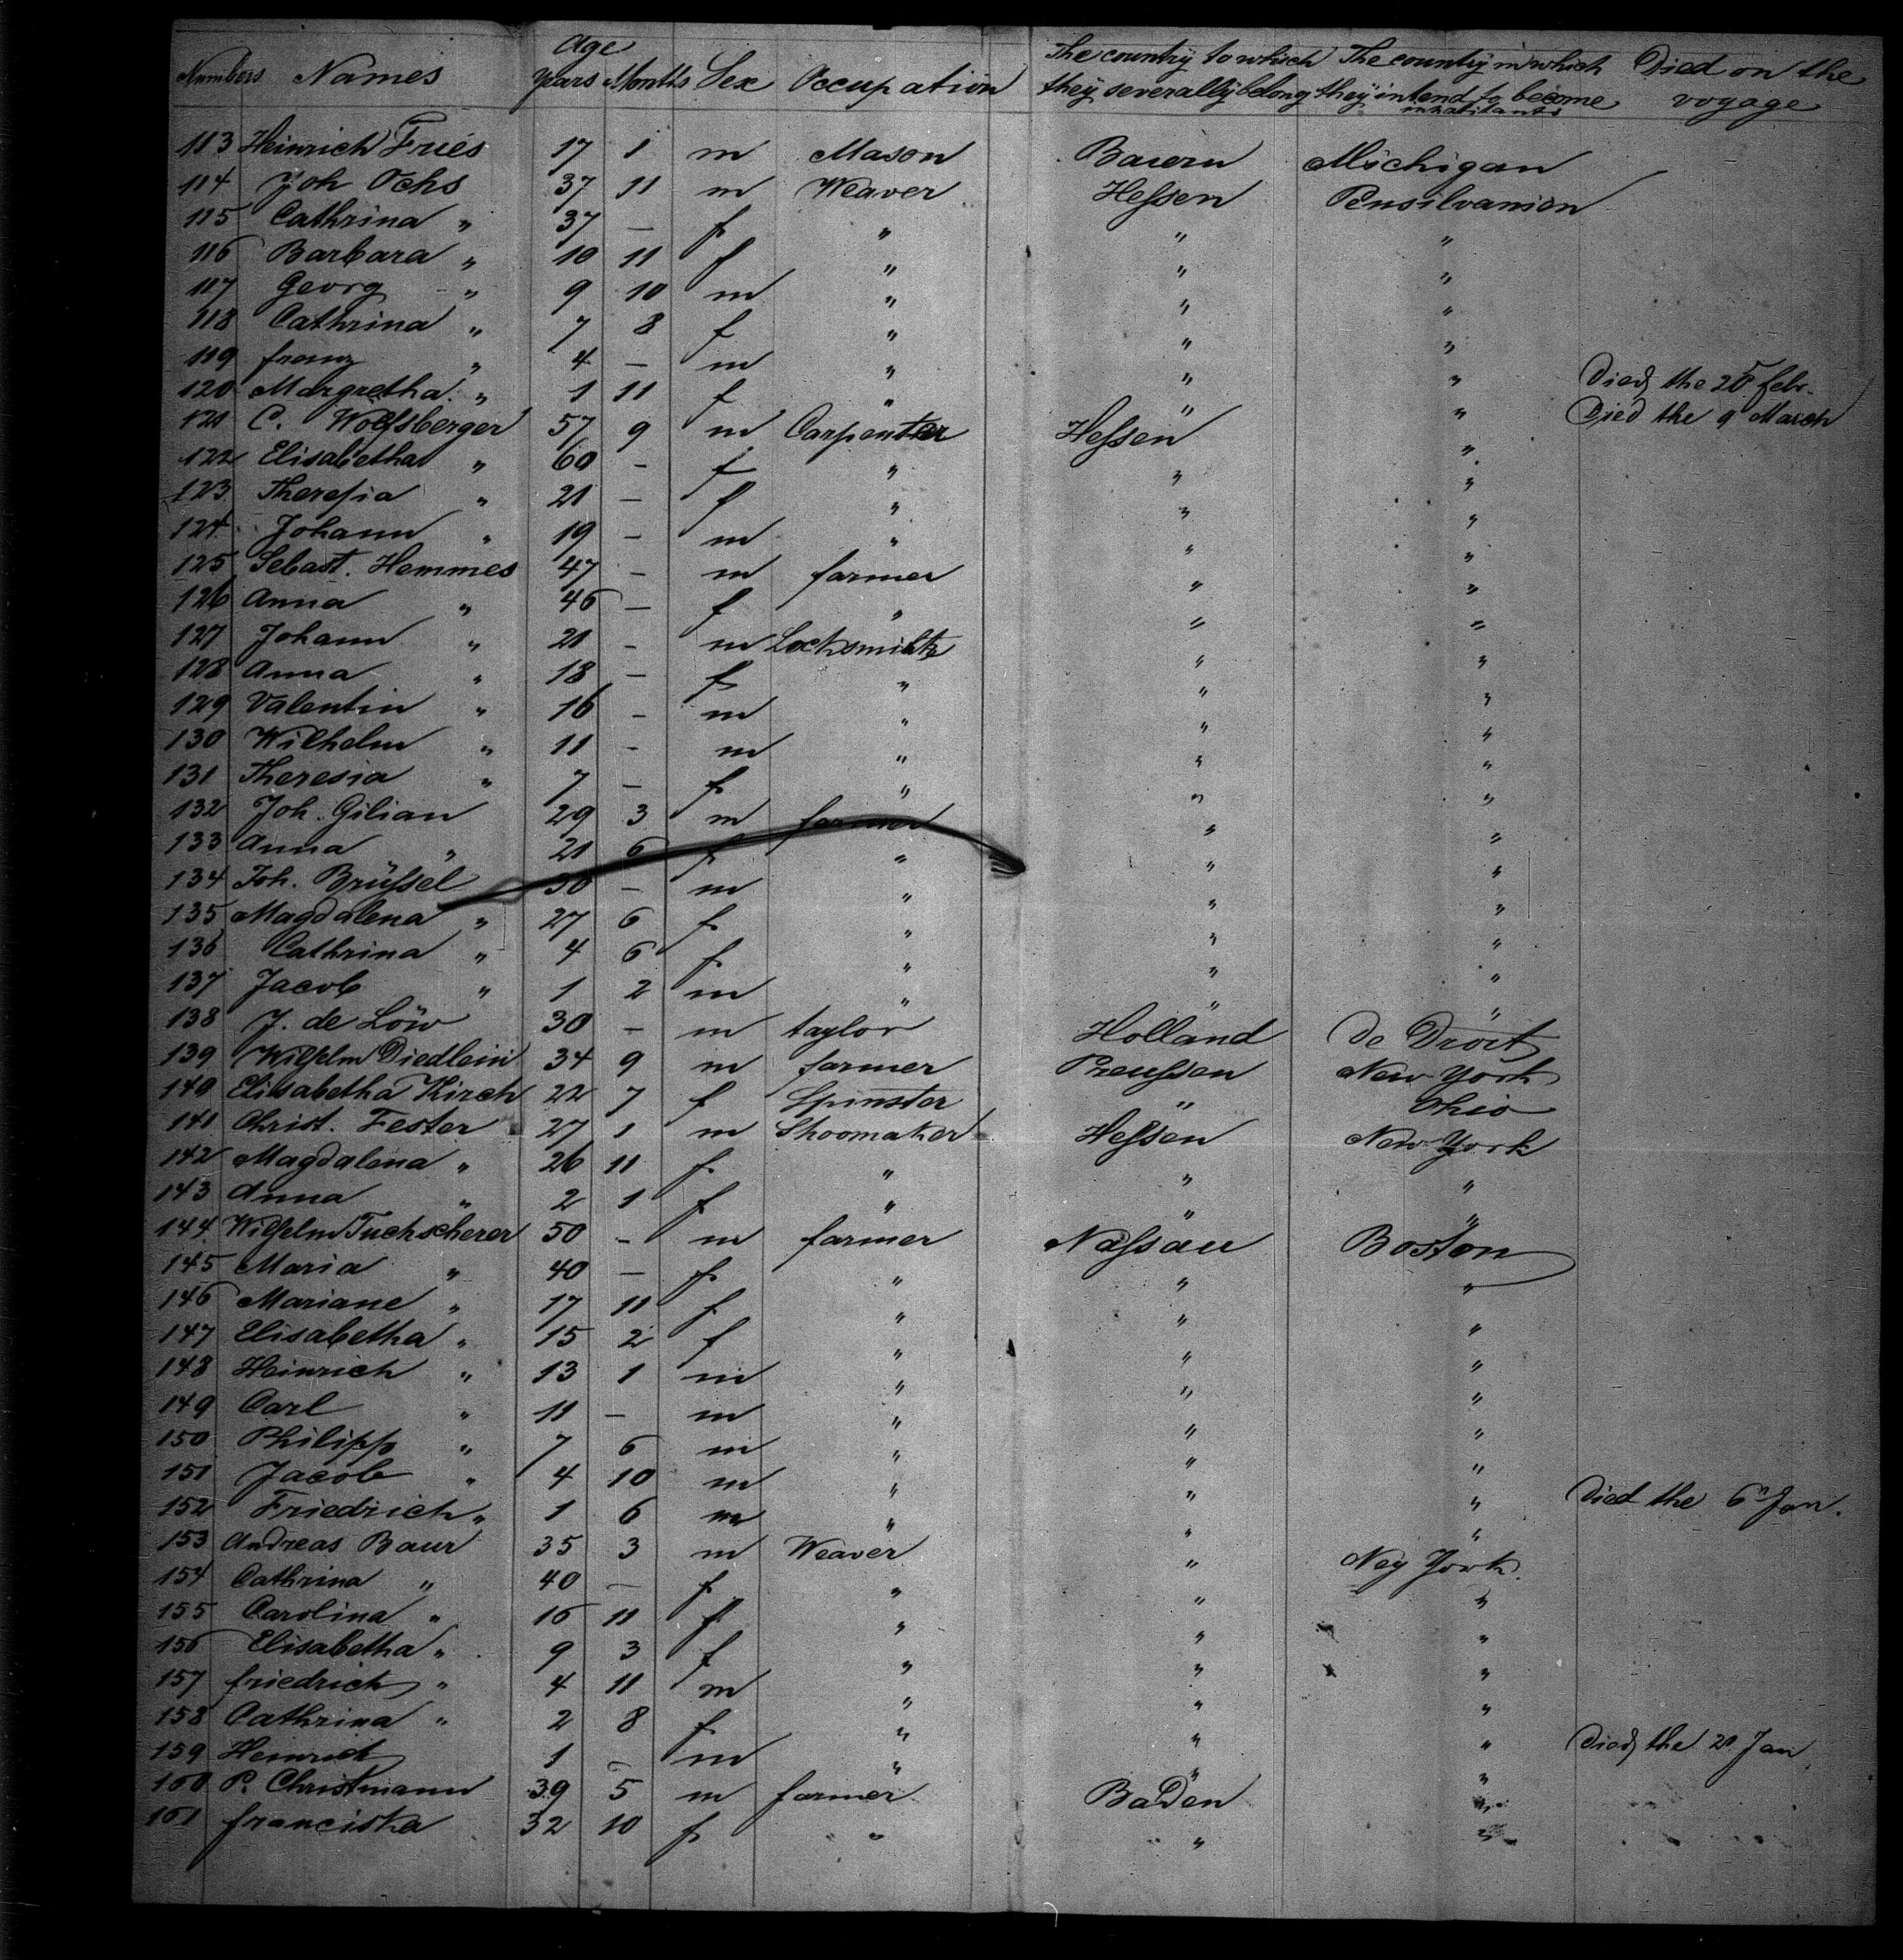 Numbers Names Age Years Months Sex Occupation The country to which they severally belong The country in which they intend to become inhabitants Died on the voyage
113 Heinrich Fries 17 1 m Mason Baiern Michigan
114 Joh Ochs 37 11 m Weaver Hessen Pensilvanien
115 Cathrina " 37 — f " " "
116 Barbara " 10 11 f " " "
117 Georg " 9 10 m " " "
118 Cathrina " 7 8 f " " "
119 franz " 4 — m " " " Died the 25 febr.
120 Margretha. " 1 11 f " " " Died the 9 March
121 C. Wolfsberger 57 9 m Carpenter Hessen "
122 Elisabetha " 60 - f " " "
123 Theresia " 21 — f " " "
124 Johann " 19 - m " " "
125 Sebast. Hemmes 47 - m farmer " "
126 Anna " 46 — f " " "
127 Johann " 21 - m Locksmith " "
128 Anna " 18 — f " " "
129 Valentin " 16 - m " " "
130 Wilhelm " 11 - m " " "
131 Theresia " 7 — f " " "
132 Joh. Gilian 29 3 m farmer " "
133 Anna " 21 6 f " " "
134 Joh. Brüssel 30 — m " " "
135 Magdalena " 27 6 f " " "
136 Cathrina " 4 6 f " " "
137 Jacob " 1 2 m " " "
138 J. de Löw 30 - m taylor Holland De Droit
139 Wilhelm Diedlein 34 9 m farmer Preussen New York
140 Elisabetha Kirch 22 7 f Spinster " Ohio
141 Christ. Fester 27 1 m Shoomaker Hessen New York
142 Magdalena " 26 11 f " " "
143 Anna " 2 1 f " " "
144 Wilhelm Tuchscherer 50 - m farmer Nassau Boston
145 Maria " 40 — f " " "
146 Mariane " 17 11 f " " "
147 Elisabetha " 15 2 f " " "
148 Heinrich " 13 1 m " " "
149 Carl " 11 — m " " "
150 Philipp " 7 6 m " " "
151 Jacob " 4 10 m " " "
152 Friedrich " 1 6 m " " " Died the 6n Jan.
153 Andreas Baur 35 3 m Weaver " Ney York.
154 Cathrina " 40 — f " " "
155 Carolina " 16 11 f " " "
156 Elisabetha " 9 3 f " " "
157 friedrich " 4 11 m " " "
158 Cathrina " 2 8 f " " "
159 Heinrich 1 — m " " " Died the Jan
160 P. Christmann 39 5 m farmer Baden "
161 franciska 32 10 f " " "